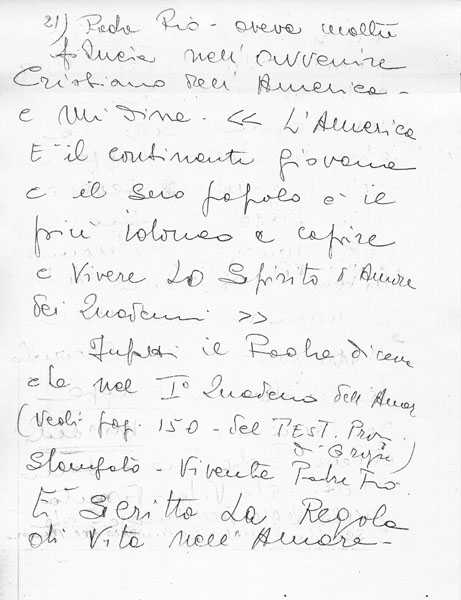 21) Padre Pio - aveva molta
fiducia nell'avvenire
Cristiano dell'America -
e mi disse - << L'America
E' il continente giovane
e il suo popolo è il
più idoneo a capire
e vivere Lo Spirito d'Amore
dei Quaderni >>
Infatti il Padre diceva
che nel I° Quaderno dell'Amore
(vedi pag. 150 - del TEST.
Stampato - Vivente Padre Pio
E' Scritto La Regola
di Vita nell'Amore -